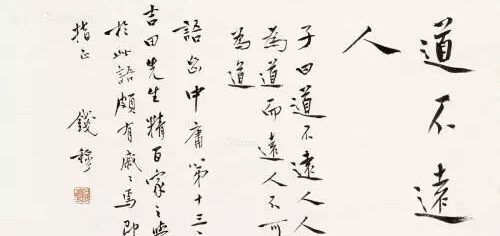 道不遠
人
子曰道不遠人人
為道而遠人不可
為道
語出中庸第十三
吉田先生精百家之
於此語頗有感焉即
指正
錢穆